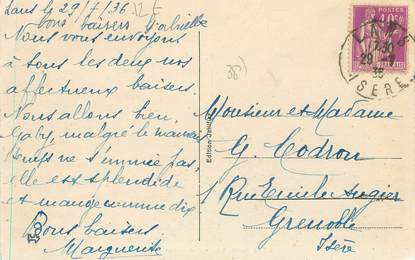 Lans le 29/7/36
bons baisers Gabrielle
Nous vous envoyons
à tous les deux nos
affectueux baisers.
Nous allons bien,
Gaby, malgré le mauvais
temps ne s'ennuie pas,
elle est splendide
et mange comme dix
Bons baisers
Marguerite
12 E
POSTES
LANS
17 30
29
36
ISERE
Monsieur et Madame
G. Codron
1 Rue Emile Augier
Grenoble
Isère